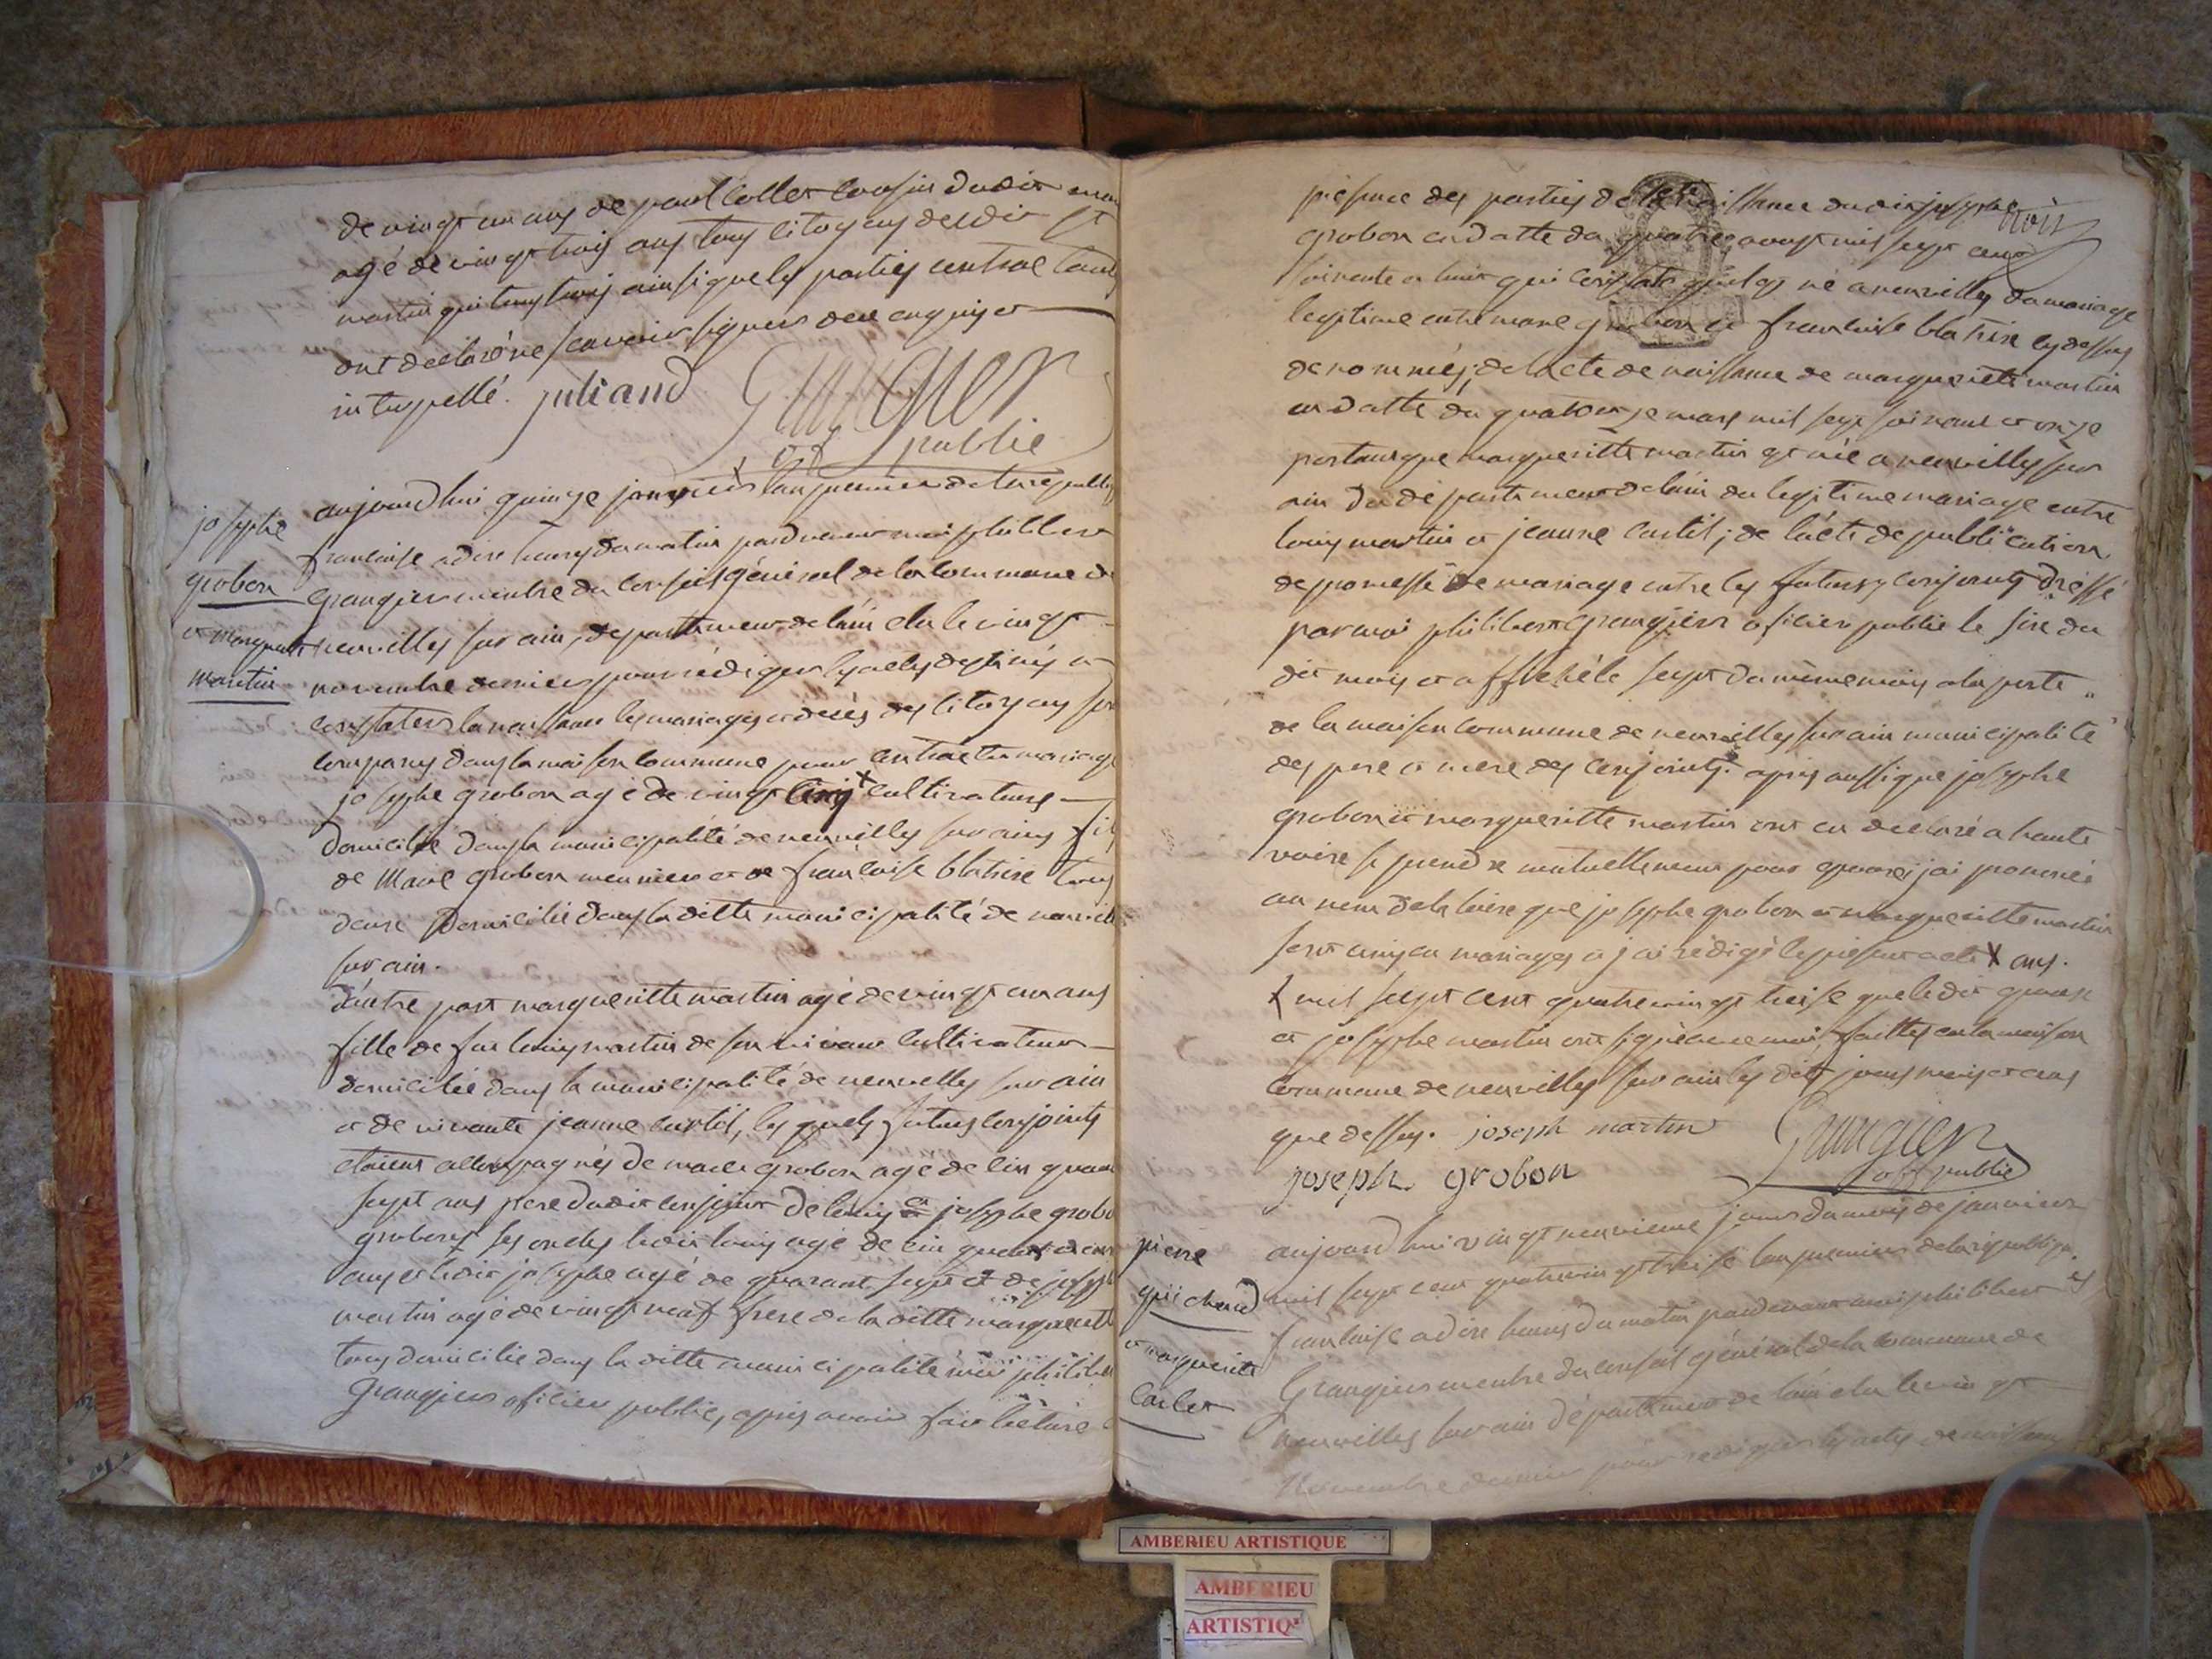 de vingt un ans de paul collet cousin dudit
agé de vingt trois ans tous citoyens dudit st
martin qui tous trois ainsi que les parties
ont declaré ne scavoir signer de ce enquis et
interpellé. juliand Grangier
off public
aujourdhui quinze janvier X lan premier de la republi
josephe
francaise a dix heures du matin pardevant moi philibert
grobon
Grangier membre du conseil général de la commune de
et marguerite
neuvilles sur ain, departement de lain elu le vingt
martin
novembre dernier pour rédiger les actes destinés a
constater la naissance les mariages et deses des citoyens
comparus dans la maison commune pour contracter mariage
josephe grobon agé de vingt cinq X cultivateurs
domicilié dans la municipalité de neuvilles sur ains fils
de Marc grobon meunier et de francoise blatrise tous
deux domicilié dans la ditte municipalité de neuville
sur ain.
dautre part margueritte martin agé de vingt un ans
fille de feu louis martin de son vivant cultivateur
domicilié dans la municipalité de neuvelles sur ain
et de vivante jeanne curtil, les quels futurs conjoints
etoient accompagnés de marc grobon agé de cin quante
sept ans pere dudit conjoint de louis et josephe grobo
grobons ses oncles ledit louis agé de cin quante
ans et ledit josephe agé de quarant sept et de joseph
martin agé de vingt neuf frere de la ditte marguerite
tous domicilié dans la ditte municipalité moi philiber
Grangier oficier public, apres avoir fait lecture
trois
présence des parties de lacte naissance dudit josephe
grobon en datte du quatre aoust mil sept cent
soixante et huit qui constate quil est né a neuvilles du mariage
legitime entre marc grobon et francoise blatrise cy dessus
denommés; de lacte de naissance de marguerite martin
en datte du quatorze mars mil sept soixante et onze
portant que margueritte martin est née a neuvilles sur
ain du département de lain du legitime mariage entre
louis martin et jeanne curtil; de lacte de publication
de promesse de mariage entre les futurs conjoints dressé
par moi philibert grangiers oficier public le sixe du
dit mois et affiché le sept du même mois a la porte
de la maison commune de neuvilles sur ain municipalité
des pere et mere des conjoints. apres aussi que josephe
grobon et marguerritte martin ont eu declaré a haute
voix se prendre mutuellement pour epoux j'ai prononcé
au nom de la loix que josephe grobon et marguerritte martin
sont unis en mariages et jai rédigé le present acte X ans.
X mil sept cent quatre vingt treise que le dit epoux
et josephe martin ont signé avec moi faittes en la maison
commune de neuvilles sur ain les dits jours mois et ans
que dessus. joseph martin Grangier
joseph grobon off public
aujourdhui vingt neuvieme jours du mois de janvier
pierre
mil sept cent quatre vingt treise lan premier de la republique
guichard
francaise a dix heures du matin pardevant moi philibert
et marguerite
Grangier membre du conseil général de la commune de
Carlet
neuvilles sur ain département de lain elu le vingt
Novembre dernier pour rediger les actes de naissance
AMBERIEU ARTISTIQUE
AMBERIEU
ARTISTIQ